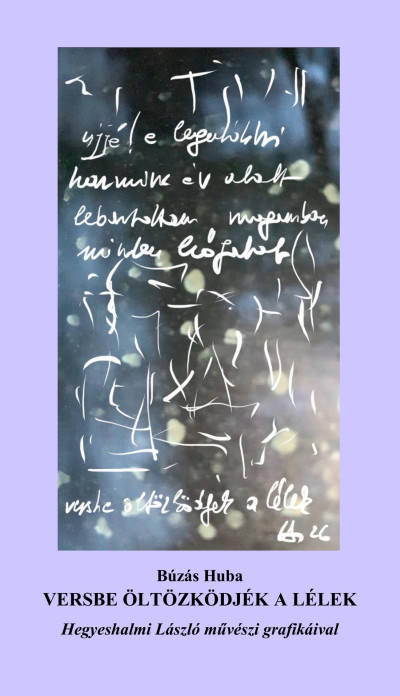 ujjé! e legutóbbi
harminc év alatt
lebontottam magamban
minden
versbe öltözködjék a lélek
26
Búzás Huba
VERSBE ÖLTÖZKÖDJÉK A LÉLEK
Hegyeshalmi László művészi grafikáival